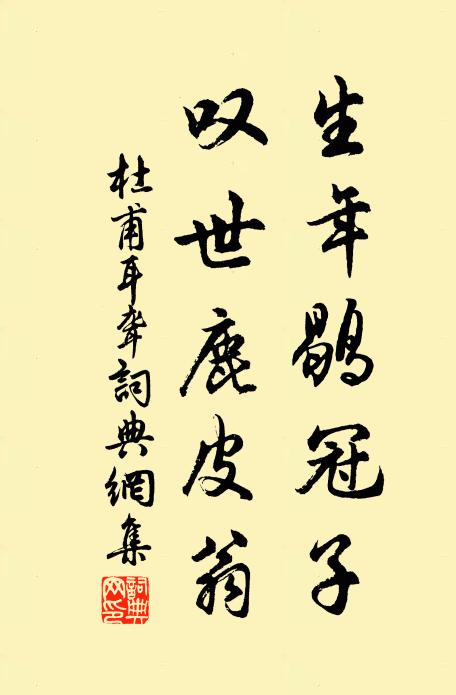 生年鶡冠子
叹世鹿皮翁
杜甫耳聾詞典網集
詞典網印